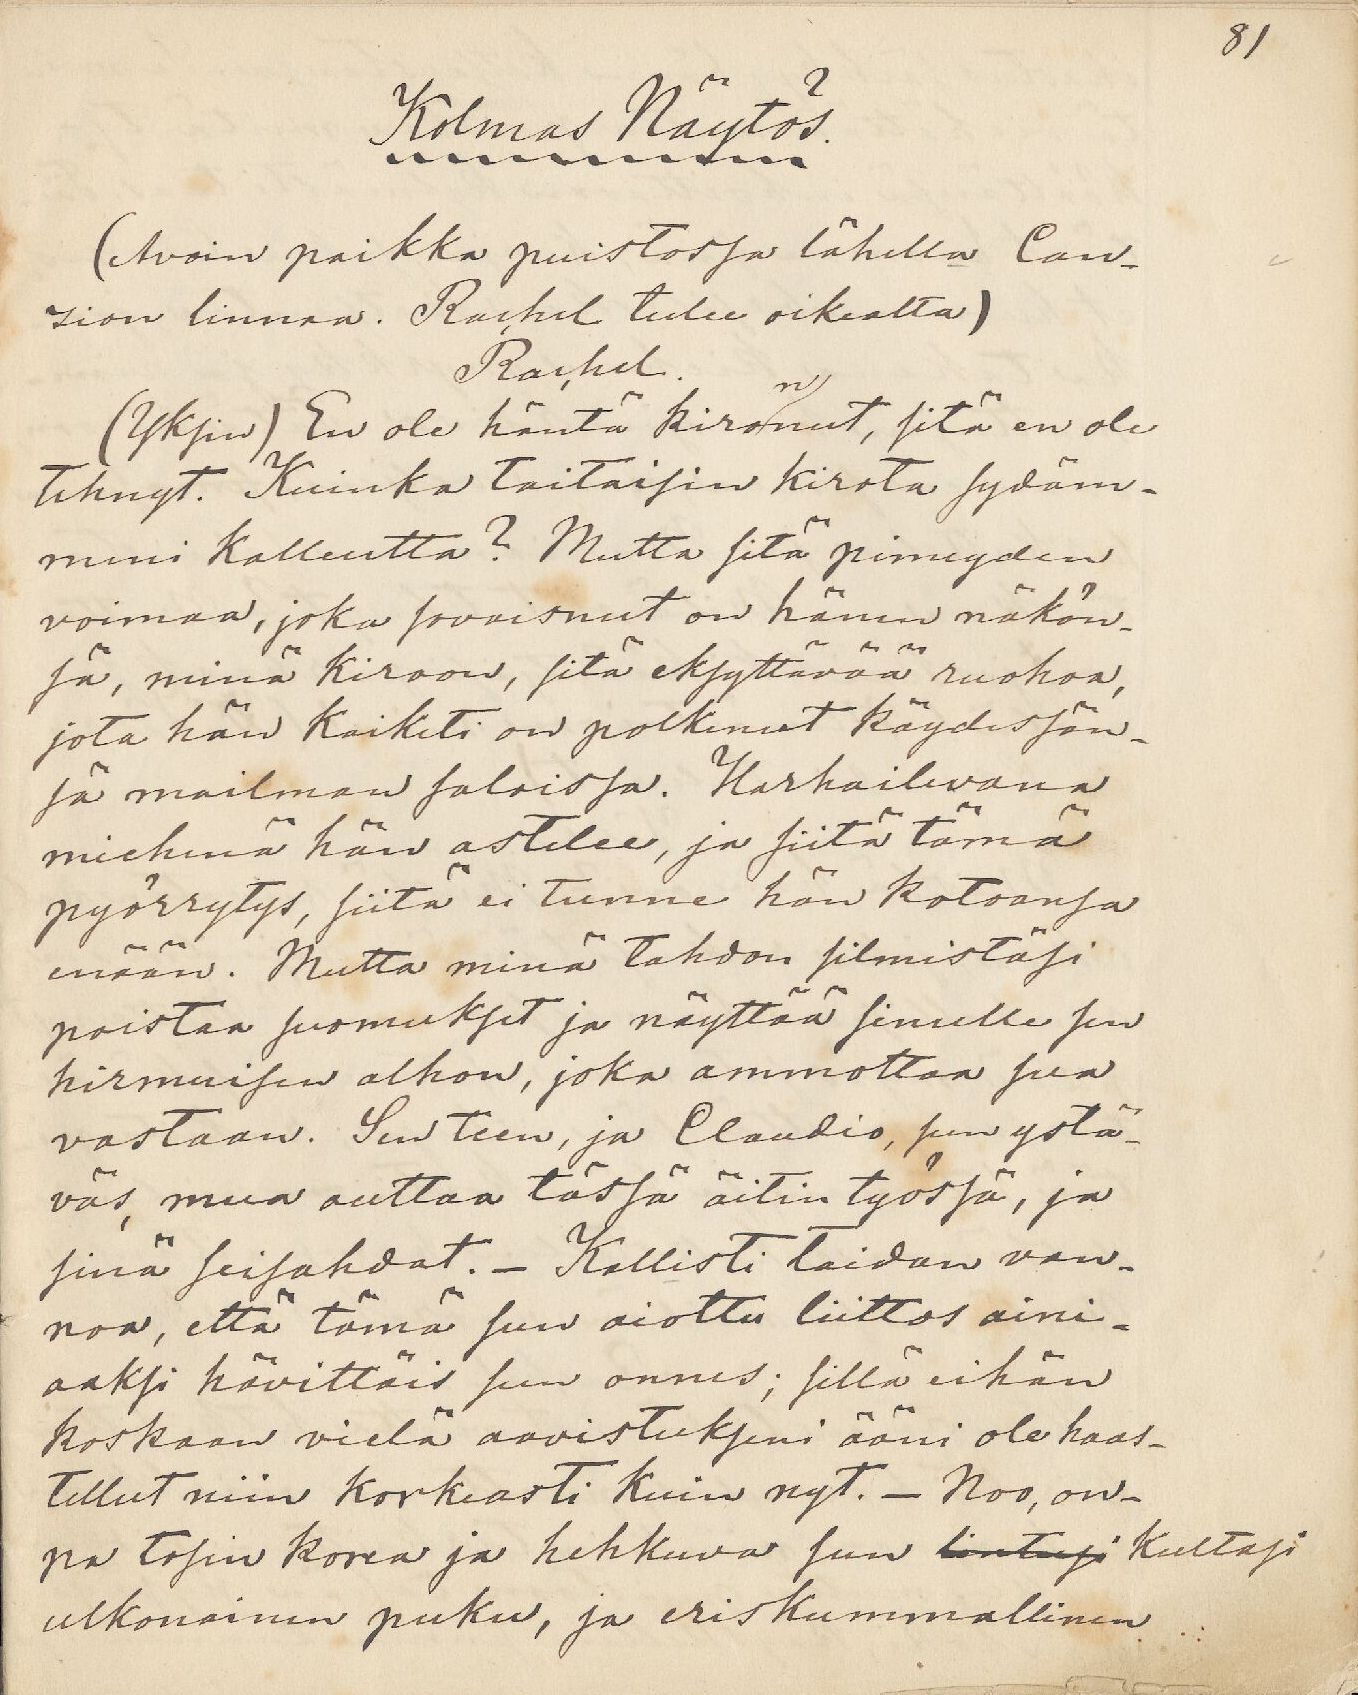 81
Kolmas Näytös.
(Avoin paikka puistossa lähellä Can-
zion linnaa. Rachel tulee oikealta)
Rachel.
(Yksin) En ole häntä kironnut, sitä en ole
tehnyt. Kuinka taitaisin kirota sydäm-
meni kalleutta? Mutta sitä pimeyden
voimaa, joka sovaisnut on hänen näkön-
sä, minä kiroon, sitä eksyttävää ruohoa,
jota hän kaiketi on polkenut käydessän-
sä mailman saloissa. Harhailevana
miehenä hän astelee, ja siitä tämä
pyörrytys, siitä ei tunne hän kotoansa
enään. Mutta minä tahdon silmistäsi
poistaa suomukset ja näyttää sinulle sen
hirmuisen alhon, joka ammottaa sua
vastaan. Sen teen, ja Claudio, sun ystä-
väs, mua auttaa tässä äitin työssä, ja
sinä seisahdat. — Kallisti taidan van-
noa, että tämä sun aiottu liittos aini-
aaksi hävittäis sun onnes; sillä eihän
koskaan vielä aavistukseni ääni ole haas-
tellut niin korkeasti kuin nyt. — Noo, on-
pa tosin korea ja hehkuva sun lintusi kultasi
ulkonainen puku, ja eriskummallinen